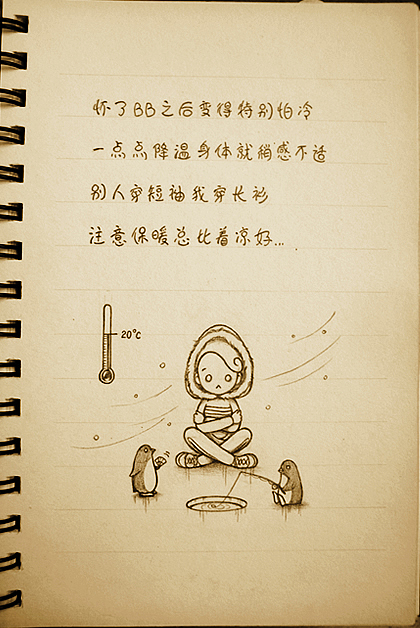 怀了BB之后变得特别怕冷
一点点降温身体就稍感不适
别人穿短袖我穿长衫
注意保暖总比着凉好...
20°C